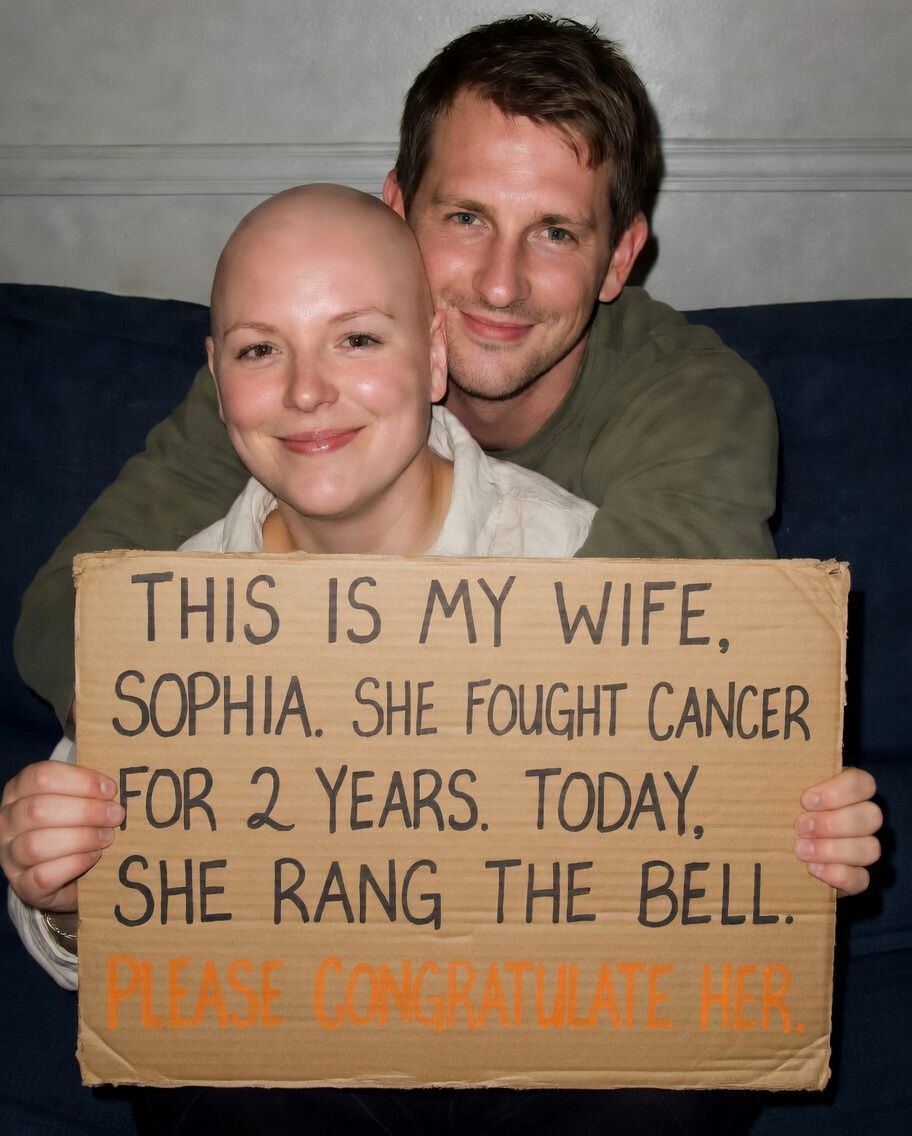 THIS IS MY WIFE,
SOPHIA. SHE FOUGHT CANCER
FOR 2 YEARS. TODAY,
SHE RANG THE BELL.
PLEASE CONGRATULATE HER.